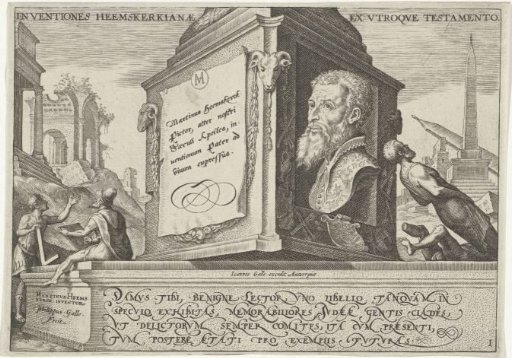 INVENTIONES HEEMSKERKIANÆ
EX VTROQVE TESTAMENTO.
M
Martinus Heemskerck
Pictor, alter nostri
Sæculi Apelles, in
uentionum Pater ad
viuum expressus.
Ioannes Galle excudit Antverpiæ
MARTINUS HEEMS
KERCK INVENTOR.
Philippus Galle
Fecit.
DAMUS TIBI, BENIGNE LECTOR, UNO LIBELLO, TANQVAM IN
SPECULO EXHIBITAS, MEMORABILIORES JUDEÆ GENTIS CLADES,
UT DELICTORUM SEMPER COMITES, ITA CUM PRÆSENTI,
TUM POSTERÆ ÆTATI PRO EXEMPLIS FUTURAS.
1